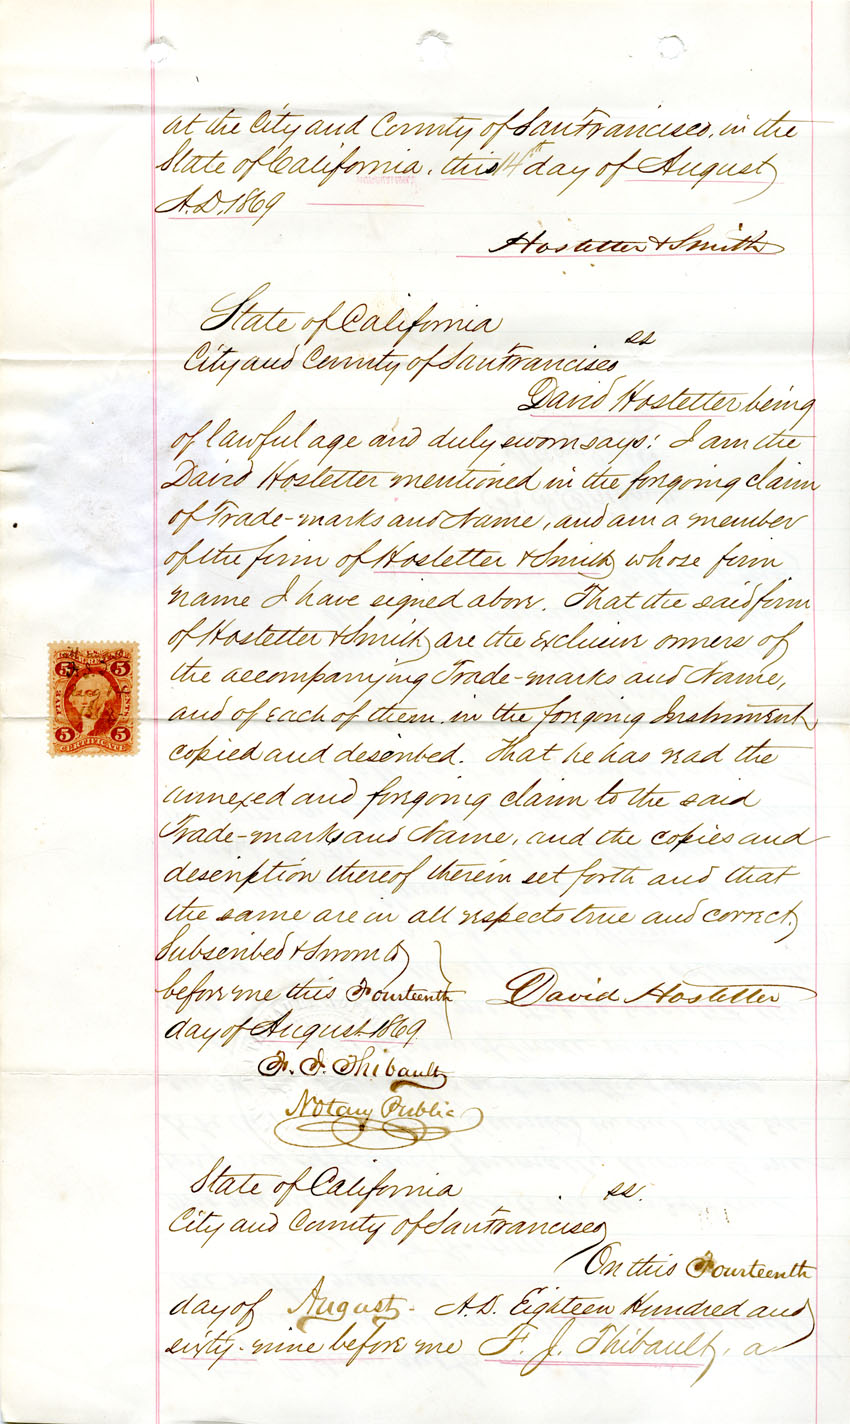 at the City and County of San Francisco, in the
State of California, this 14th day of August
A.D. 1869
Hostetter & Smith
State of California
ss
City and County of San Francisco
David Hostetter being
of lawful age and duly sworn says: I am the
David Hostetter mentioned in the forgoing claim
of Trade-marks and Name, and am a member
of the firm of Hostetter & Smith whose firm
name I have signed above. That the said firm
of Hostetter & Smith are the exclusive owners of
the accompanying Trade-marks and Name,
and of each of them in the forgoing Instrument
copied and described. That he has read the
annexed and forgoing claim to the said
Trade-marks and Name, and the copies and
description thereof therein set forth and that
the same are in all respects true and correct.
Subscribed & Sworn to
before me this Fourteenth David Hostetter
day of August 1869
F. J. Thibault
Notary Public
5 5
FIVE CENTS
5 5
CERTIFICATE
State of California ss.
City and County of San Francisco
On this Fourteenth
day of August A.D. Eighteen Hundred and
sixty-nine before me F. J. Thibault, a